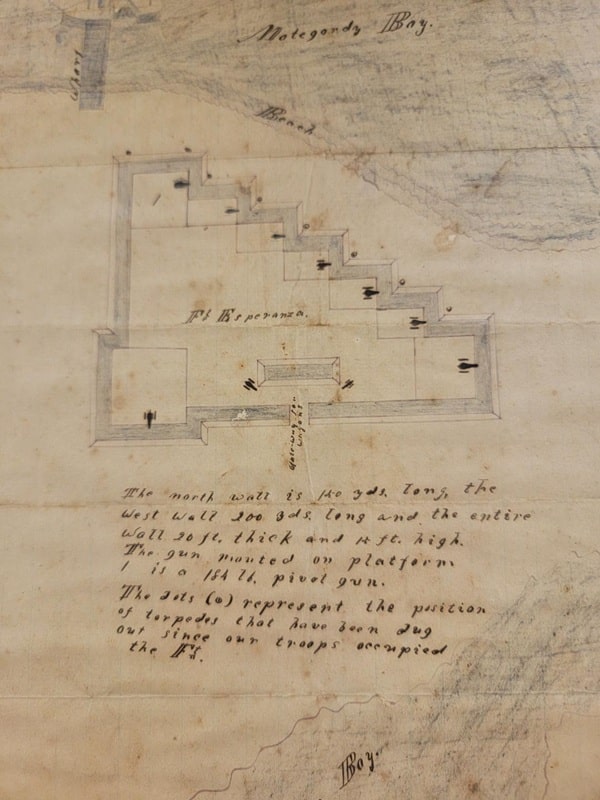 Mategordy Bay.
Wharf
Beach
1
Ft Esperanza.
Gate-way for
wagons
The north wall is 140 yds. long, the
West wall 200 yds. long and the entire
wall 20 ft. thick and 14 ft. high.
The gun mounted on platform
1 is a 184 lb. pivot gun.
The dots (o) represent the position
of torpedes that have been dug
out since our troops occupied
the Ft.
Bay.